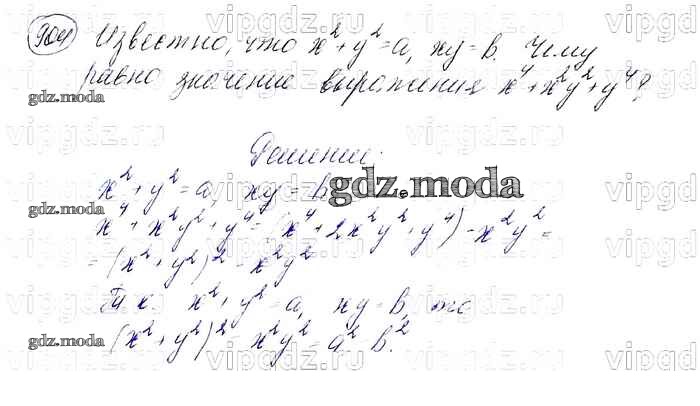 904 Известно, что x²+y²=a, xy=b. Чему
равно значение выражения x⁴+x²y²+y⁴?
Решение.
x²+y²=a, xy=b
x⁴+x²y²+y⁴=(x⁴+2x²y²+y⁴)-x²y²=
=(x²+y²)²-x²y²
Т.к. x²+y²=a, xy=b, то
(x²+y²)² x²y²=a² b².
gdz.moda
gdz.moda
gdz.moda
gdz.moda
vipgdz.ru vipgdz.ru vipgdz.ru
vipgdz.ru vipgdz.ru vipgdz.ru
vipgdz.ru vipgdz.ru vipgdz.ru